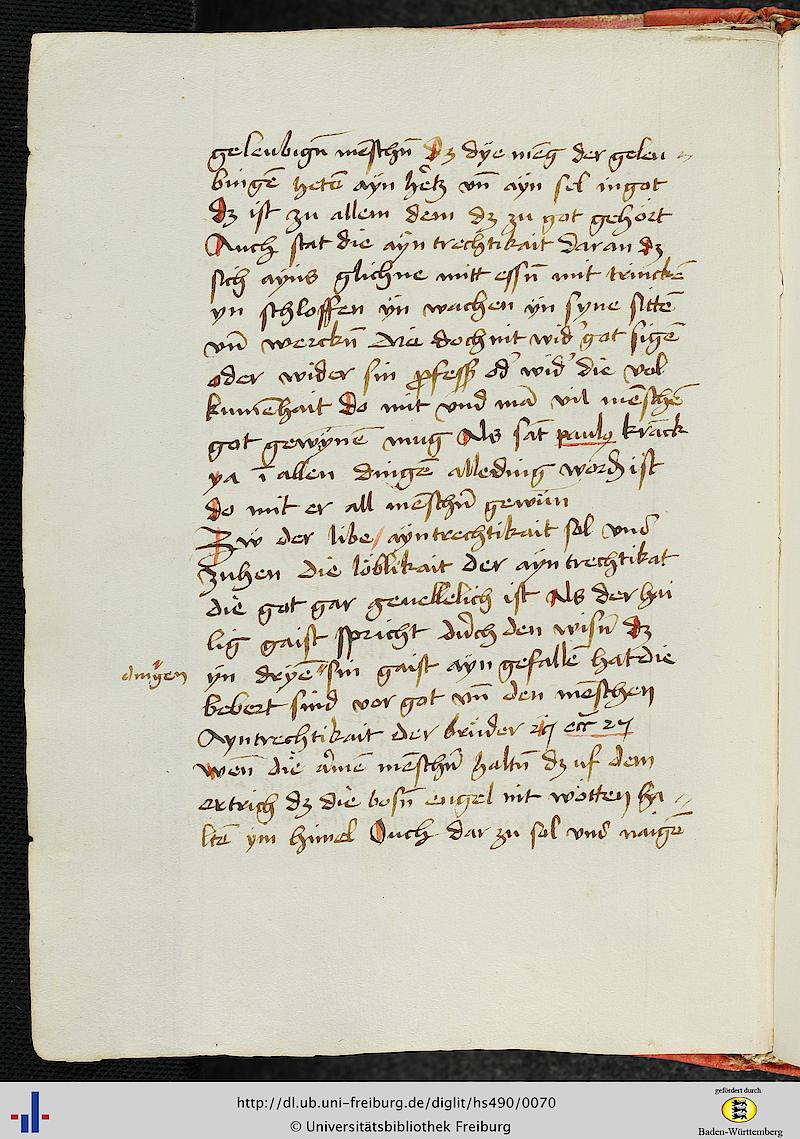 geleubign̄ mēschn̄ Dz dÿe mēg der geleu
bingē hetē aÿn hêtz vn̄ aÿn sel in got
dz ist zu allem dem dz zu got gehört
Auch stat die aÿntrechtikait daran dz
sich aÿns gliche mitt essn̄ mit trinckē
yn schloffen ÿn wachen ÿn syne sittē
vn̄ werckn̄ Die doch nit wid' got sigē
oder wider sin ꝓfess od' wid' die vol
kumēhait do mit vnd mā vil mēschē
got gewÿnē mug Als sāt paulꝰ kranck
ya ī allen dingē alleding word ist
do mit er all mēschn̄ gewün
Zw der libe / ayntrechtikait sol vns
zuhen die löblikait der ayntrechtikat
die got gar geuellelich ist Als der hai
lig gaist spricht durch den wisn̄ dz
ÿn drÿē sin gaist aÿn gefallē hat die
dingen
bebert sind vor got vn̄ den mēschen
Ayntrechtikait der brüder eccͣ
wen̄ die armē mēschn̄ haltn̄ dz uf dem
ertrich dz die bosn̄ engel nit wotten ha
ltē ÿm himel Ouch dar zu sol vns naigē
http://dl.ub.uni-freiburg.de/diglit/hs490/0070
© Universitätsbibliothek Freiburg
gefördert durch
Baden-Württemberg